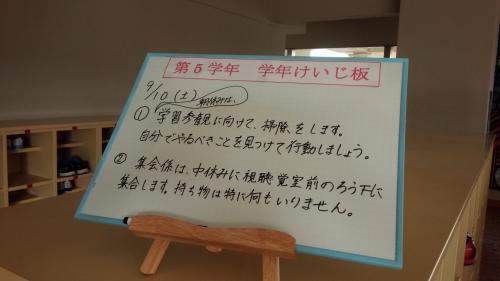 第5学年 学年けいじ板
9/10(土) 朝休みは、
① 学習参観に向けて、掃除をします。
自分でやるべきことを見つけて行動しましょう。
② 集会係は、中休みに視聴覚室前のろう下に
集合します。持ち物は特に何もいりません。